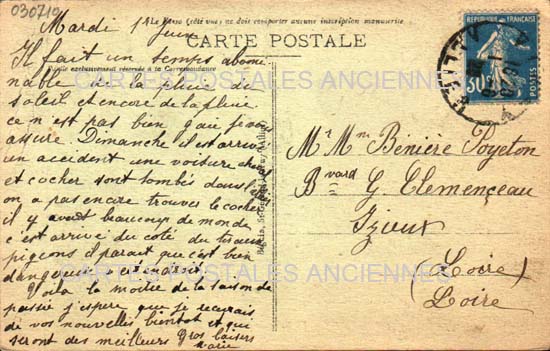 030719
Mardi 1 Juin
Le Verso (côté vue) ne doit comporter aucune inscription manuscrite
CARTE POSTALE
exclusivement réservée à la Correspondance
Il fait un temps abomi
nable de la pluie du
soleil et encore de la pluie
ce n'est pas bien gaie je vous
assure. Dimanche il est arrivé
un accident une voiture cheval
et cocher sont tombés dans
on a pas encore trouver le cocher
il y avait beaucoup de monde
c'est arrivé du coté du tir aux
pigeons il parait que c'est bien
dangereux cet endroit.
Voila la moitié de la saison de
passée j'espère que je recevrais
de vos nouvelles bientot et qui
seront des meilleurs Gros baisers
Marie
REPUBLIQUE FRANÇAISE
30c
POSTES
Mr Mme Bénière Poyeton
Bvard G. Clemenceau
Izieux
(Loire)
Loire
CARTES POSTALES ANCIENNES
CARTES POSTALES ANCIENNES